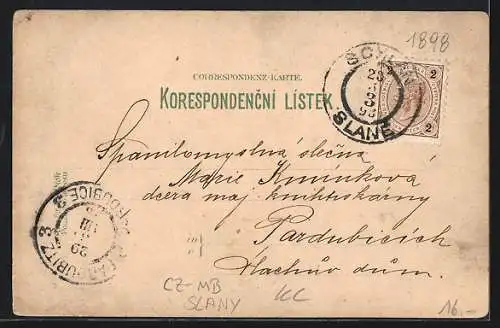 1898
CORRESPONDENZ-KARTE.
KORESPONDENČNÍ LÍSTEK
2
2
SLANÉ
Spanilomyslná slečna
Marie Kmínková
dcera maj. knihtiskárny
Pardubicích
Machův dům.
PARDUBITZ 3
PARDUBICE 3
29
CZ-MB
SLANY
16.-